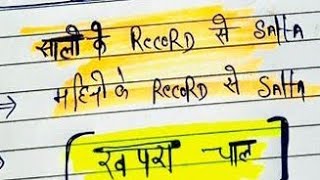 सालो के RecoRD से Satta
⇒ महिनो के RecoRD से Satta
[खपरा चाल]